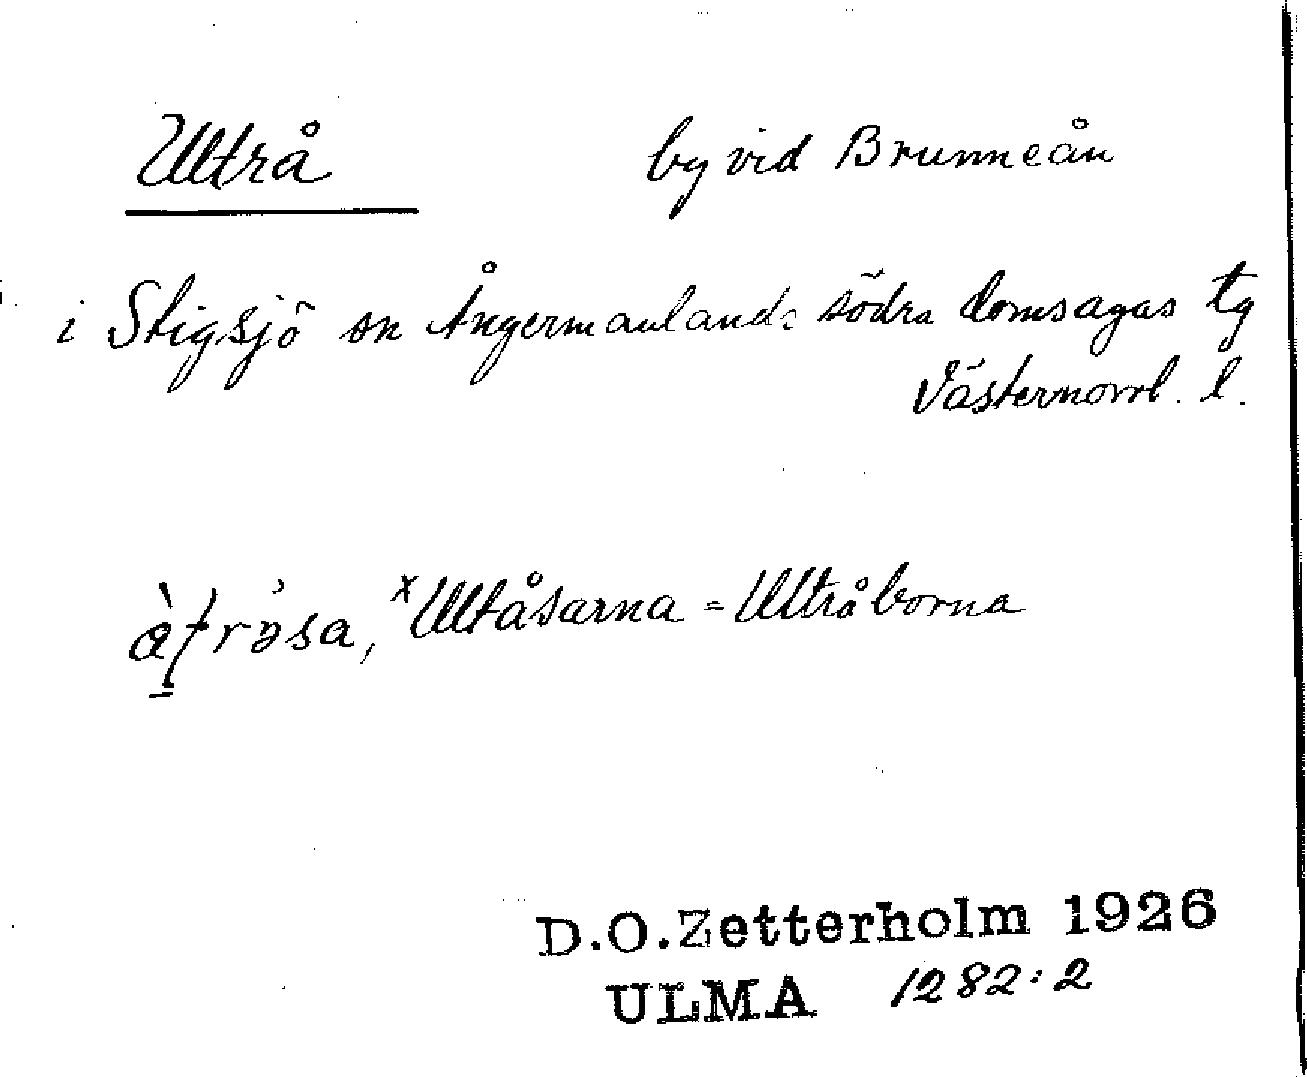 Ultrå by vid Brunneån
i Stigsjö sn Ångermanlands södra domsagas tg
Västernorrl. l.
xUltåsarna = Ultråborna
D.O.Zetterholm 1926
ULMA 1282:2